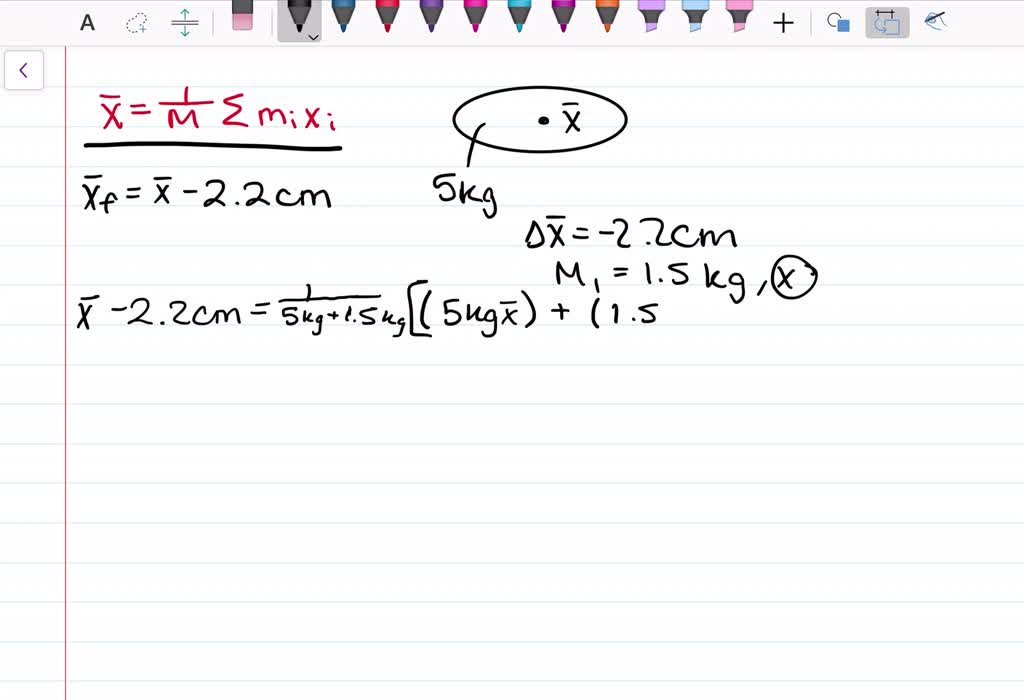 A
x̄ = 1/M Σ mᵢxᵢ
x̄
x̄f = x̄ - 2.2cm
5kg
Δx̄ = -2.2cm
M₁ = 1.5 kg, x
x̄ - 2.2cm = 1/5kg+1.5kg [(5kgx̄) + (1.5